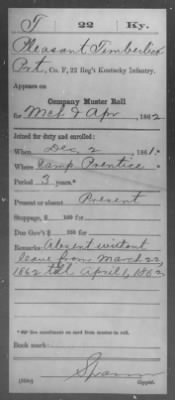 T | 22 | Ky.
Pleasant Timberlick
Pvt., Co. F, 22 Reg't Kentucky Infantry.
Appears on
Company Muster Roll
for Mch & Apr, 1862
Joined for duty and enrolled:
When Dec. 2, 1861.*
Where Camp Prentice *
Period 3 years.*
Present or absent Present
Stoppage, $ 100 for
Due Gov't $ 100 for
Remarks: Absent without
leave from March 22,
1862 till April 1, 1862
Book mark:
Copyist.